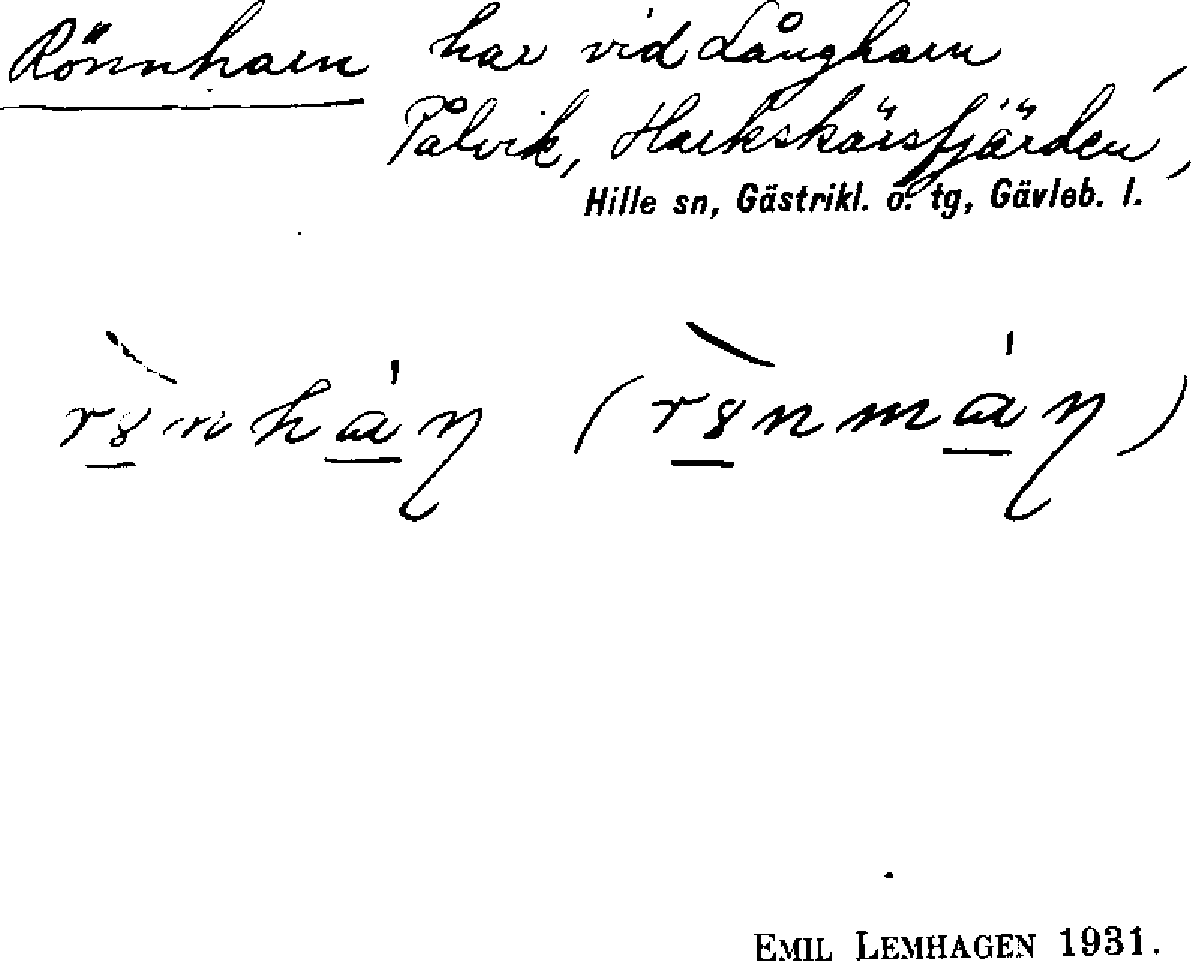 Rönnharn har vid Långharn,
Pålvik, Harkskärsfjärden,
Hille sn, Gästrikl. ö. tg, Gävleb. l.
r8̀nháɳ (r8̀nmáɳ)
EMIL LEMHAGEN 1931.